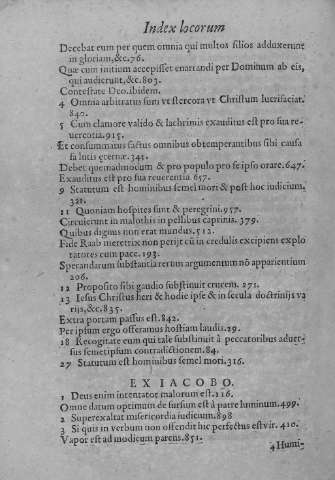 Index locorum
Decebat eum per quem omnia qui multos filios adduxerunt
in gloriam,&c.76.
Quæ cum initium accepisset enarrandi per Dominum ab eis,
qui audierunt,&c.803.
Contestate Deo.ibidem.
4 Omnia arbitratus sum vt stercora vt Christum lucrifaciat.
840.
5 Cum clamore valido & lachrimis exauditus est pro sua re-
uerentia.915.
Et consummatus factus omnibus obtemperantibus sibi causa
salutis eternæ.341.
Debet quemadmodum & pro populo pro se ipso orare.647.
Exauditus est pro sua reuerentia 657.
9 Statutum est hominibus semel mori & post hoc iudicium.
321.
11 Quoniam hospites sunt & peregrini.957.
Circuierunt in malothis in pellibus caprinis.379.
Quibus dignus non erat mundus.512.
Fide Raab meretrix non perijt cū in credulis excipiens explo
ratores cum pace.193.
Sperandarum substantia rerum argumentum nō apparientium
206.
12 Proposito sibi gaudio substinuit crucem. 271.
13 Iesus Christus heri & hodie ipse & in secula doctrinijs va
rijs,&c.835.
Extra portam passus est.842.
Per ipsum ergo offeramus hostiam laudis.29.
18 Recogitate eum qui tale substinuit à peccatoribus aduer-
sus semetipsum contradictionem.84.
27 Statutum est hominibus semel mori.316.
EX IACOBO.
1 Deus enim intentator malorum est.116.
Omne datum optimum de sursum est à patre luminum.499.
2 Superexaltat misericordia iudicium.898
3 Si quis in verbum non offendit hic perfectus est vir. 410.
Vapor est ad modicum parens.851.
4 Humi-